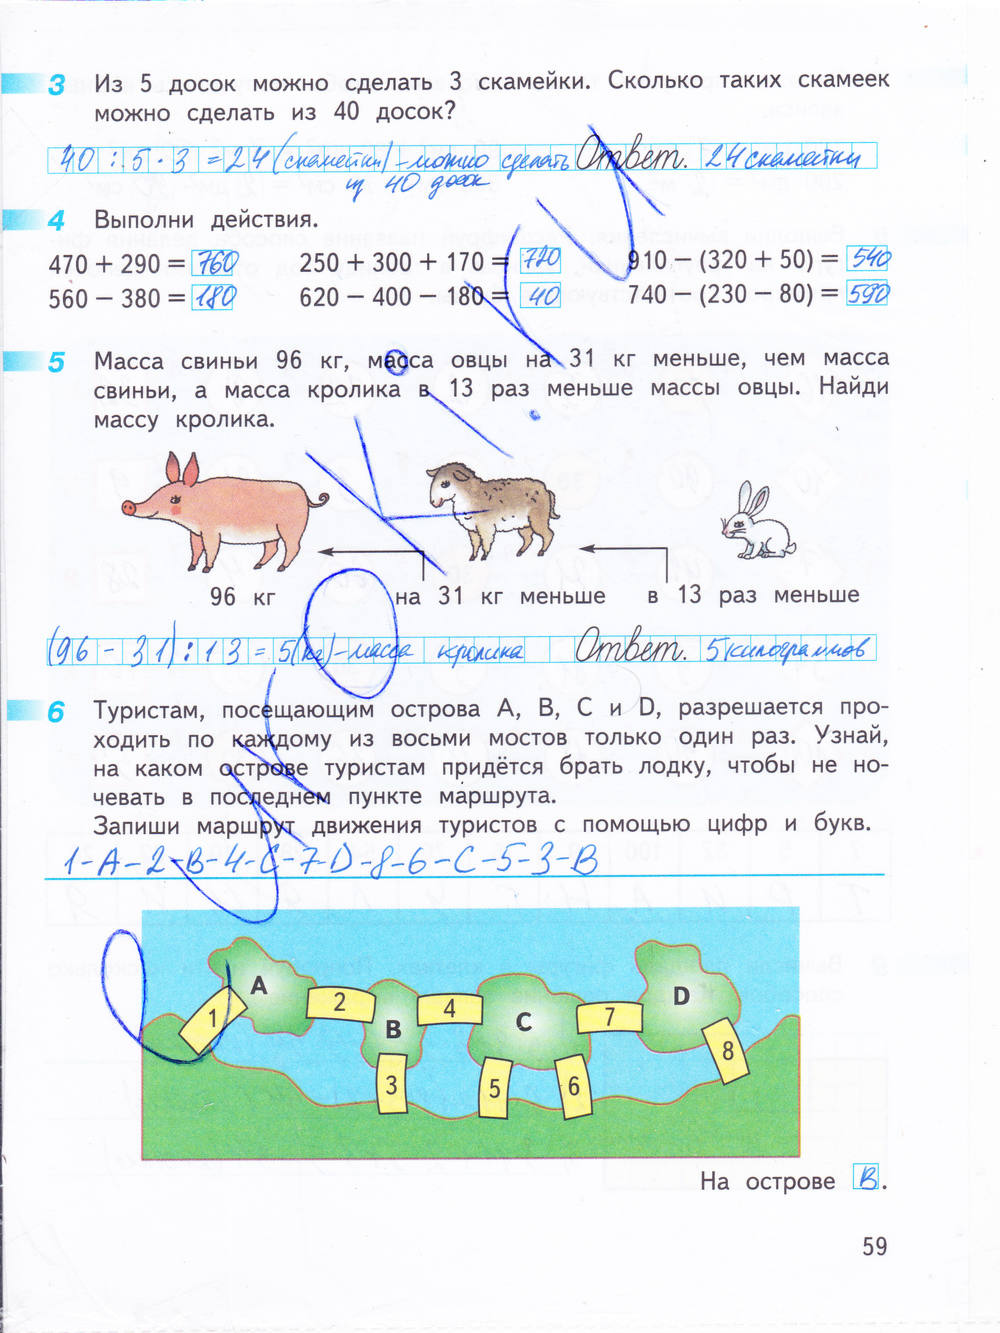 3 Из 5 досок можно сделать 3 скамейки. Сколько таких скамеек
можно сделать из 40 досок?
40 : 5 · 3 = 24 (скамейки) – можно сделать Ответ. 24 скамейки
из 40 досок
4 Выполни действия.
470 + 290 = 760 250 + 300 + 170 = 720 910 – (320 + 50) = 540
560 – 380 = 180 620 – 400 – 180 = 40 740 – (230 – 80) = 590
5 Масса свиньи 96 кг, масса овцы на 31 кг меньше, чем масса
свиньи, а масса кролика в 13 раз меньше массы овцы. Найди
массу кролика.
96 кг на 31 кг меньше в 13 раз меньше
(96 – 31) : 13 = 5 (кг) – масса кролика Ответ. 5 килограммов
6 Туристам, посещающим острова A, B, C и D, разрешается про-
ходить по каждому из восьми мостов только один раз. Узнай,
на каком острове туристам придётся брать лодку, чтобы не но-
чевать в последнем пункте маршрута.
Запиши маршрут движения туристов с помощью цифр и букв.
1-A-2-B-4-C-7-D-8-6-C-5-3-B
A
B
C
D
1
2
4
7
3
5
6
8
На острове B.
59